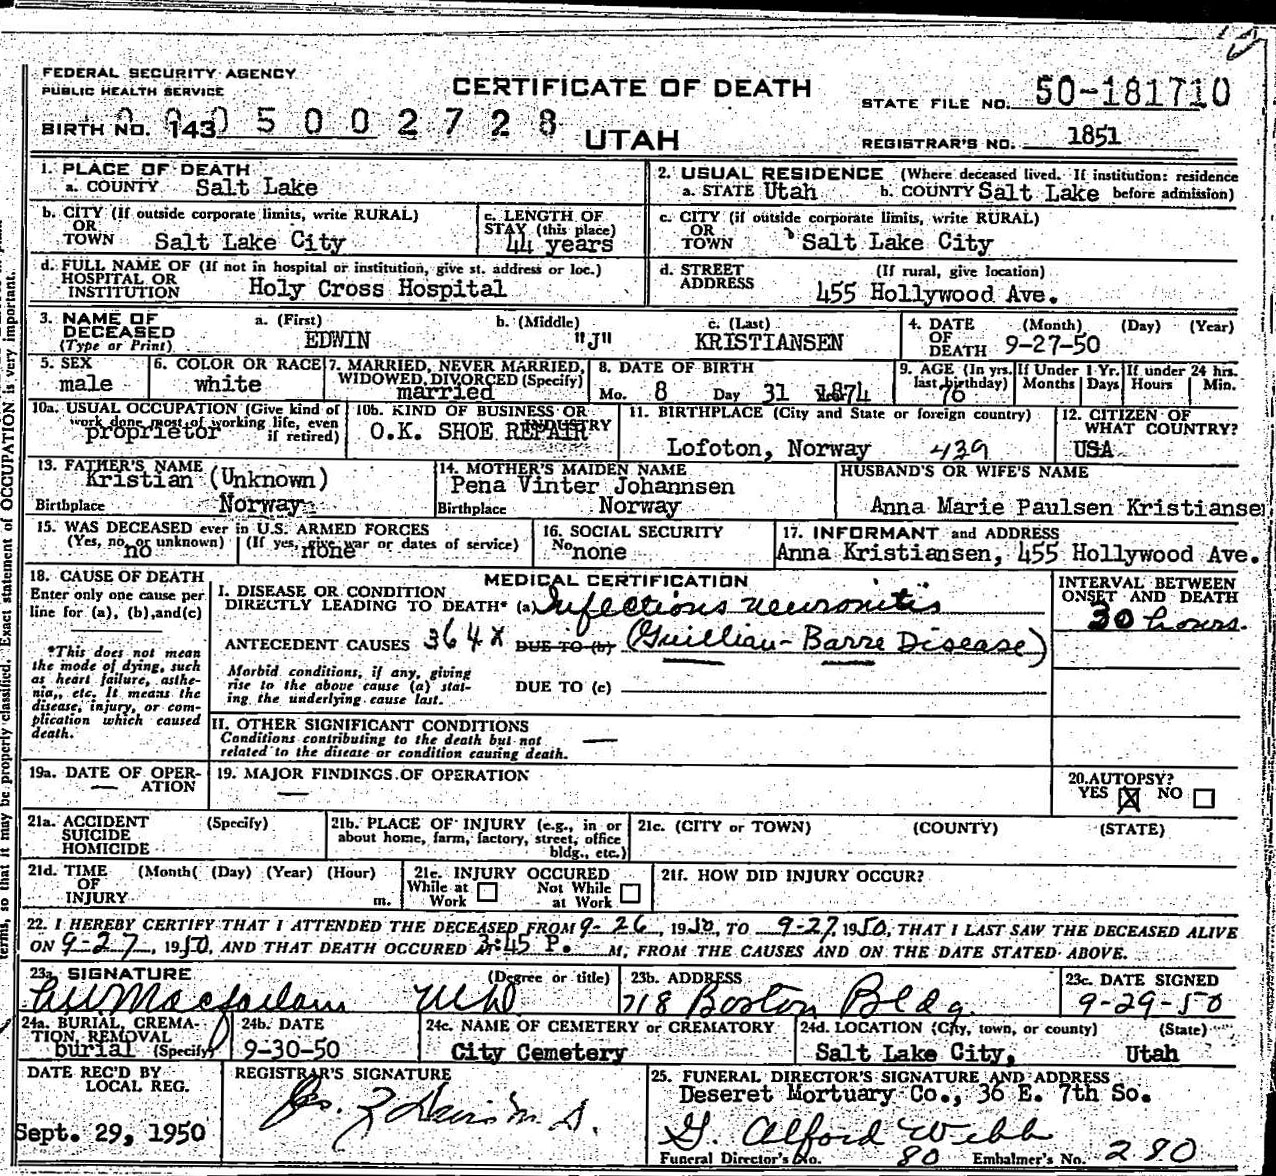 FEDERAL SECURITY AGENCY
PUBLIC HEALTH SERVICE
CERTIFICATE OF DEATH
UTAH
STATE FILE NO. 50-181710
BIRTH NO. 143
005002728
REGISTRAR'S NO. 1851
1. PLACE OF DEATH
a. COUNTY Salt Lake
2. USUAL RESIDENCE (Where deceased lived. If institution: residence before admission)
a. STATE Utah b. COUNTY Salt Lake
b. CITY (If outside corporate limits, write RURAL)
OR
TOWN Salt Lake City
c. LENGTH OF
STAY (this place)
44 years
c. CITY (if outside corporate limits, write RURAL)
OR
TOWN Salt Lake City
d. FULL NAME OF (If not in hospital or institution, give st. address or loc.)
HOSPITAL OR
INSTITUTION Holy Cross Hospital
d. STREET (If rural, give location)
ADDRESS 455 Hollywood Ave.
3. NAME OF
DECEASED
(Type or Print)
a. (First) b. (Middle) c. (Last)
EDWIN "J" KRISTIANSEN
4. DATE (Month) (Day) (Year)
OF
DEATH 9-27-50
5. SEX
male
6. COLOR OR RACE
white
7. MARRIED, NEVER MARRIED,
WIDOWED, DIVORCED (Specify)
married
8. DATE OF BIRTH
Mo. 8 Day 31 1874
9. AGE (In yrs.
last birthday)
76
If Under 1 Yr.
Months Days
If under 24 hrs.
Hours Min.
10a. USUAL OCCUPATION (Give kind of
work done most of working life, even
if retired)
proprietor
10b. KIND OF BUSINESS OR
INDUSTRY
O.K. SHOE REPAIR
11. BIRTHPLACE (City and State or foreign country)
Lofoton, Norway 439
12. CITIZEN OF
WHAT COUNTRY?
USA
13. FATHER'S NAME
Kristian (Unknown)
Birthplace Norway
14. MOTHER'S MAIDEN NAME
Pena Vinter Johannsen
Birthplace Norway
HUSBAND'S OR WIFE'S NAME
Anna Marie Paulsen Kristiansen
15. WAS DECEASED ever in U.S. ARMED FORCES
(Yes, no, or unknown) (If yes, give war or dates of service)
no none
16. SOCIAL SECURITY
No. none
17. INFORMANT and ADDRESS
Anna Kristiansen, 455 Hollywood Ave.
18. CAUSE OF DEATH
Enter only one cause per
line for (a), (b), and (c)
*This does not mean
the mode of dying, such
as heart failure, asthe-
nia, etc. It means the
disease, injury, or com-
plication which caused
death.
MEDICAL CERTIFICATION
I. DISEASE OR CONDITION
DIRECTLY LEADING TO DEATH* (a) Infectious neuronitis
ANTECEDENT CAUSES 364X DUE TO (b) (Guillian-Barre Disease)
Morbid conditions, if any, giving
rise to the above cause (a) stat-
ing the underlying cause last.
DUE TO (c)
INTERVAL BETWEEN
ONSET AND DEATH
30 hours.
II. OTHER SIGNIFICANT CONDITIONS
Conditions contributing to the death but not
related to the disease or condition causing death. —
19a. DATE OF OPER-
ATION —
19. MAJOR FINDINGS OF OPERATION
—
20. AUTOPSY?
YES X NO
21a. ACCIDENT (Specify)
SUICIDE
HOMICIDE
21b. PLACE OF INJURY (e.g., in or
about home, farm, factory, street, office
bldg., etc.)
21c. (CITY or TOWN) (COUNTY) (STATE)
21d. TIME (Month) (Day) (Year) (Hour)
OF
INJURY m.
21e. INJURY OCCURED
While at Work Not While at Work
21f. HOW DID INJURY OCCUR?
22. I HEREBY CERTIFY THAT I ATTENDED THE DECEASED FROM 9-26, 1950, TO 9-27, 1950, THAT I LAST SAW THE DECEASED ALIVE
ON 9-27, 1950, AND THAT DEATH OCCURED AT 3:45 P. M, FROM THE CAUSES AND ON THE DATE STATED ABOVE.
23a. SIGNATURE (Degree or title)
MD
23b. ADDRESS
718 Boston Bldg.
23c. DATE SIGNED
9-29-50
24a. BURIAL, CREMA-
TION, REMOVAL
burial (Specify)
24b. DATE
9-30-50
24c. NAME OF CEMETERY or CREMATORY
City Cemetery
24d. LOCATION (City, town, or county) (State)
Salt Lake City, Utah
DATE REC'D BY
LOCAL REG.
Sept. 29, 1950
REGISTRAR'S SIGNATURE
M.D.
25. FUNERAL DIRECTOR'S SIGNATURE AND ADDRESS
Deseret Mortuary Co., 36 E. 7th So.
G. Alford Webb
Funeral Director's No. 80 Embalmer's No. 280
terms, so that it may be properly classified. Exact statement of OCCUPATION is very important.